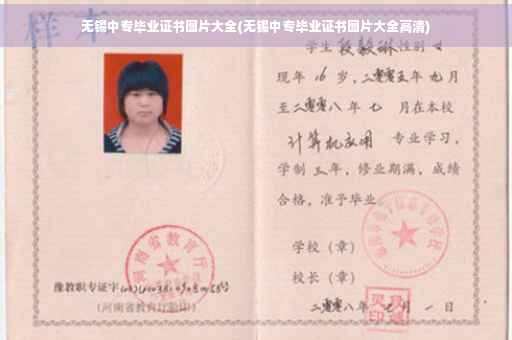 样本
无锡中专毕业证书图片大全(无锡中专毕业证书图片大全高清)
学生 段毅琳 性别 女
现年 16 岁，二零零五年 九月
至二零零八年 七 月在本校
计算机应用 专业学习，
学制 三 年，修业期满，成绩
合格，准予毕业
学校（章）
校长（章）
河南省教育厅
豫教职专证字
(河南省教育厅验印)
二零零八年 月 一 日